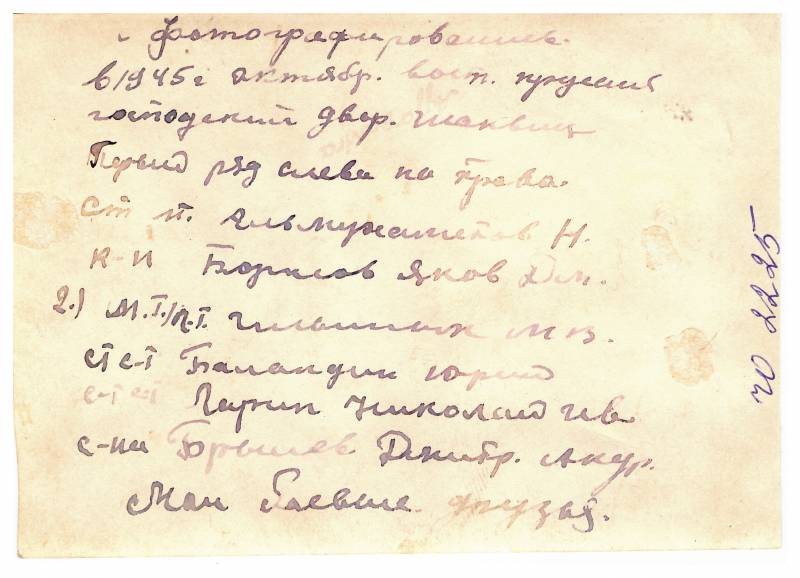 фотографировались.
в 1945 г октябр. вост. пруссия
господский двор.
Первый ряд слева на права.
Ст л. Альмухаметов Н.
к-н Борисов Яков Дм.
2.) М.В.
ст с-т Баландин Юрий
с-т с-т Гарин Николай Ив
с-на Брышев Дмитр. Андр.
Мои боевые друзья.
ЧО 2225